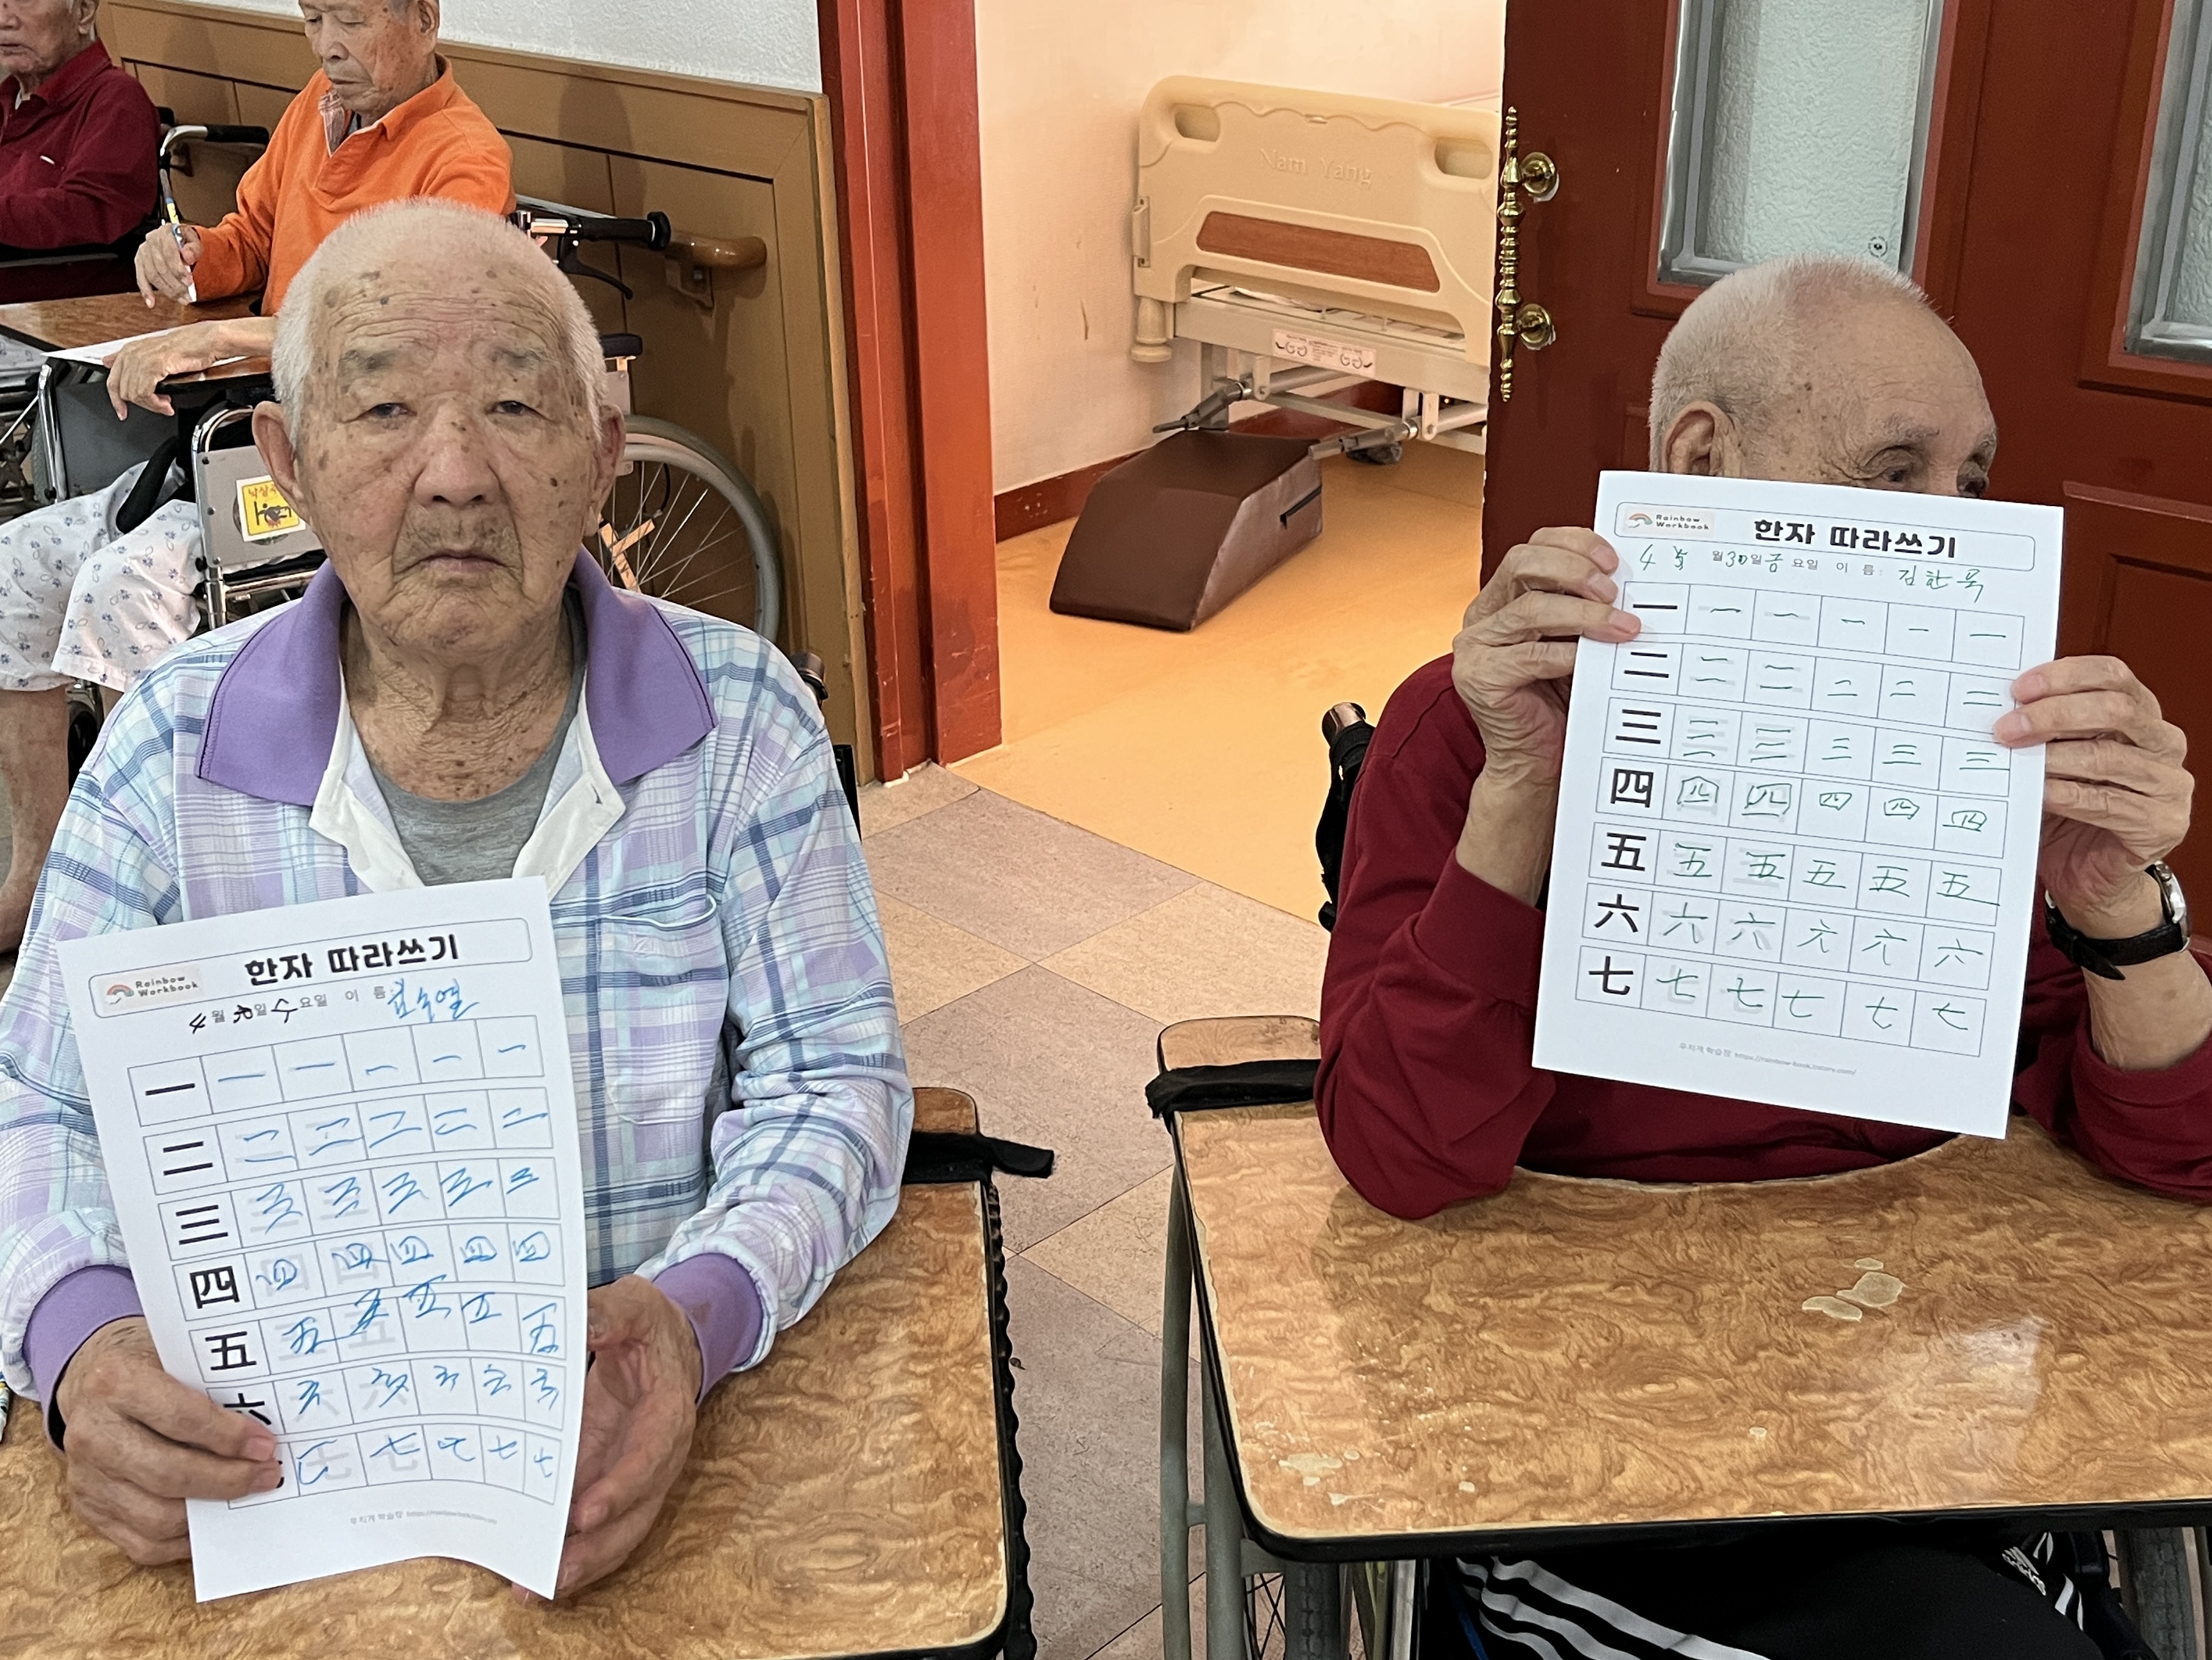 Nam Yang
낙상주의
Rainbow
Workbook
한자 따라쓰기
4월 30일 수요일 이름:
一 一 一 一 一 一
二 二 二 二 二 二
三 三 三 三 三 三
四 四 四 四 四 四
五 五 五 五 五 五
六 六 六 六 六 六
七 七 七 七 七
무지개 학습장
Rainbow
Workbook
한자 따라쓰기
4 월 30일 금 요일 이 름: 김한목
一 一 一 一 一 一
二 二 二 二 二 二
三 三 三 三 三 三
四 四 四 四 四 四
五 五 五 五 五 五
六 六 六 六 六 六
七 七 七 七 七 七
무지개 학습장 https://rainbow-book.tistory.com/